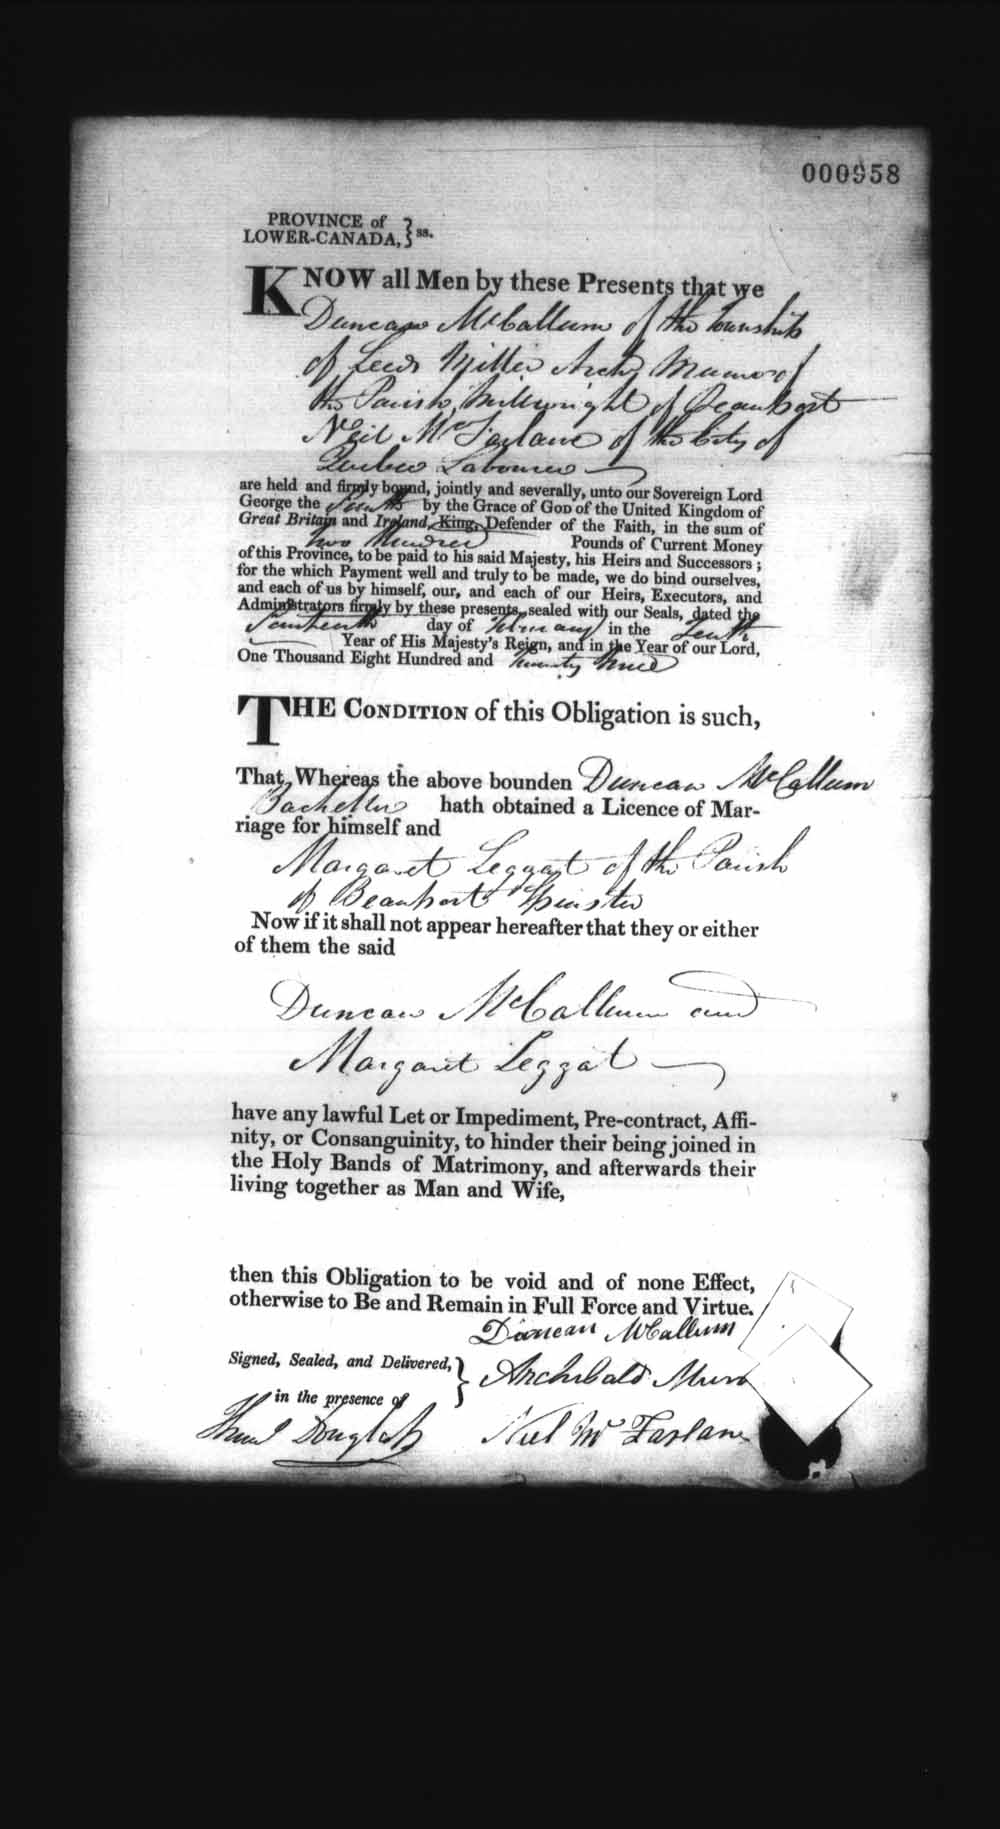 000958
PROVINCE of
LOWER-CANADA, } ss.
KNOW all Men by these Presents that we
Duncan McCallum of the Township
of Leeds Miller Archd Munro of
the Parish, Millwright of Beauport
Neil McFarlane of the City of
Quebec Labourer
are held and firmly bound, jointly and severally, unto our Sovereign Lord
George the Fourth by the Grace of GOD of the United Kingdom of
Great Britain and Ireland, King, Defender of the Faith, in the sum of
Two Hundred Pounds of Current Money
of this Province, to be paid to his said Majesty, his Heirs and Successors ;
for the which Payment well and truly to be made, we do bind ourselves,
and each of us by himself, our, and each of our Heirs, Executors, and
Administrators firmly by these presents, sealed with our Seals, dated the
day of February in the
Year of His Majesty's Reign, and in the Year of our Lord,
One Thousand Eight Hundred and Twenty three
THE CONDITION of this Obligation is such,
That, Whereas the above bounden Duncan McCallum
Bachellor hath obtained a Licence of Mar-
riage for himself and
Margaret Leggat of the Parish
of Beauport Spinster
Now if it shall not appear hereafter that they or either
of them the said
Duncan McCallum and
Margaret Leggat
have any lawful Let or Impediment, Pre-contract, Affi-
nity, or Consanguinity, to hinder their being joined in
the Holy Bands of Matrimony, and afterwards their
living together as Man and Wife,
then this Obligation to be void and of none Effect,
otherwise to Be and Remain in Full Force and Virtue.
Duncan McCallum
Signed, Sealed, and Delivered, }
Archibald Munro
in the presence of
Douglas
Neil McFarlane